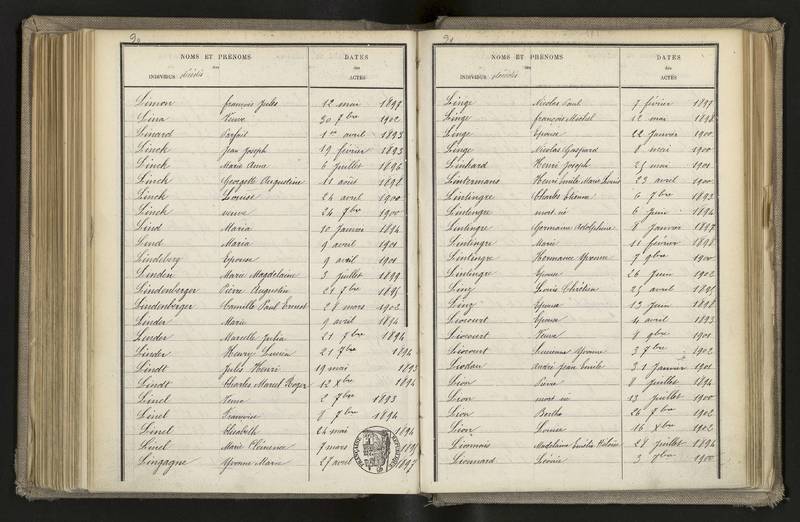 NOMS ET PRÉNOMS
des
INDIVIDUS décédés
DATES
des
ACTES
Limon François Jules 12 mai 1897
Lina Veuve 30 7bre 1902
Linard Parfait 1er avril 1893
Linck Jean Joseph 19 février 1893
Linck Marie Anna 6 juillet 1896
Linck Georgette Augustine 11 août 1898
Linck Louise 24 avril 1900
Linck veuve 24 7bre 1900
Lind Maria 10 Janvier 1894
Lind Maria 9 avril 1901
Lindeberg Epouse 9 avril 1901
Linden Marie Magdelaine 3 juillet 1899
Lindenberger Pierre Augustin 21 7bre 1895
Lindenberger Camille Paul Ernest 28 mars 1902
Linder Marie 9 avril 1894
Linder Marcelle Julia 21 7bre 1894
Linder Henry Lucien 21 7bre 1894
Lindt Jules Henri 19 mai 1893
Lindt Charles Marcel Roger 12 Xbre 1894
Linel Veuve 2 7bre 1893
Linel Françoise 8 7bre 1894
Linel Elisabeth 24 mai 1894
Linel Marie Clémence 7 mars
Lingagne Yvonne Marie 27 avril 1897
NOMS ET PRÉNOMS
des
INDIVIDUS décédés
DATES
des
ACTES
Linge Nicolas Paul 7 février 1897
Linge François Michel 12 mai 1898
Linge Epouse 22 Janvier 1900
Linge Nicolas Gaspard 8 mai 1900
Linhard Henri Joseph 21 mai 1901
Lintermans Henri Emile Marie Louis 23 avril 1900
Lintingre Charles Etienne 6 7bre 1893
Lintingre mort né 6 Juin 1894
Lintingre Germaine Adolphine 8 Janvier 1897
Lintingre Marie 11 février 1898
Lintingre Hermance Yvonne 7 9bre 1900
Lintingre Epouse 26 Juin 1902
Linz Louis Chrétien 25 avril 1895
Linz Epouse 13 Juin 1898
Liocourt Epouse 4 avril 1893
Liocourt Veuve 8 9bre 1901
Liocourt Yvonne 3 7bre 1902
Liodau André Jean Emile 31 Janvier 1901
Lion Pierre 8 Juillet 1894
Lion mort né 13 Juillet 1900
Lion Berthe 26 7bre 1902
Lion Louise 16 Xbre 1902
Lionnais Madeleine Emilie 28 Juillet 1894
Lionnard 3 1900